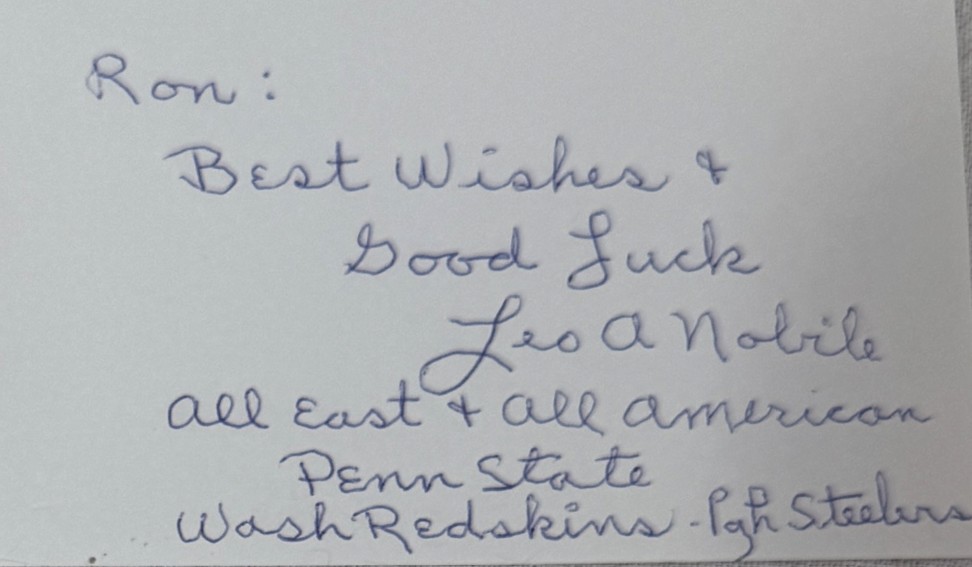 Ron:
Best Wishes &
Good Luck
Leo A Nobile
All East & All American
Penn State
Wash Redskins - Pgh Steelers